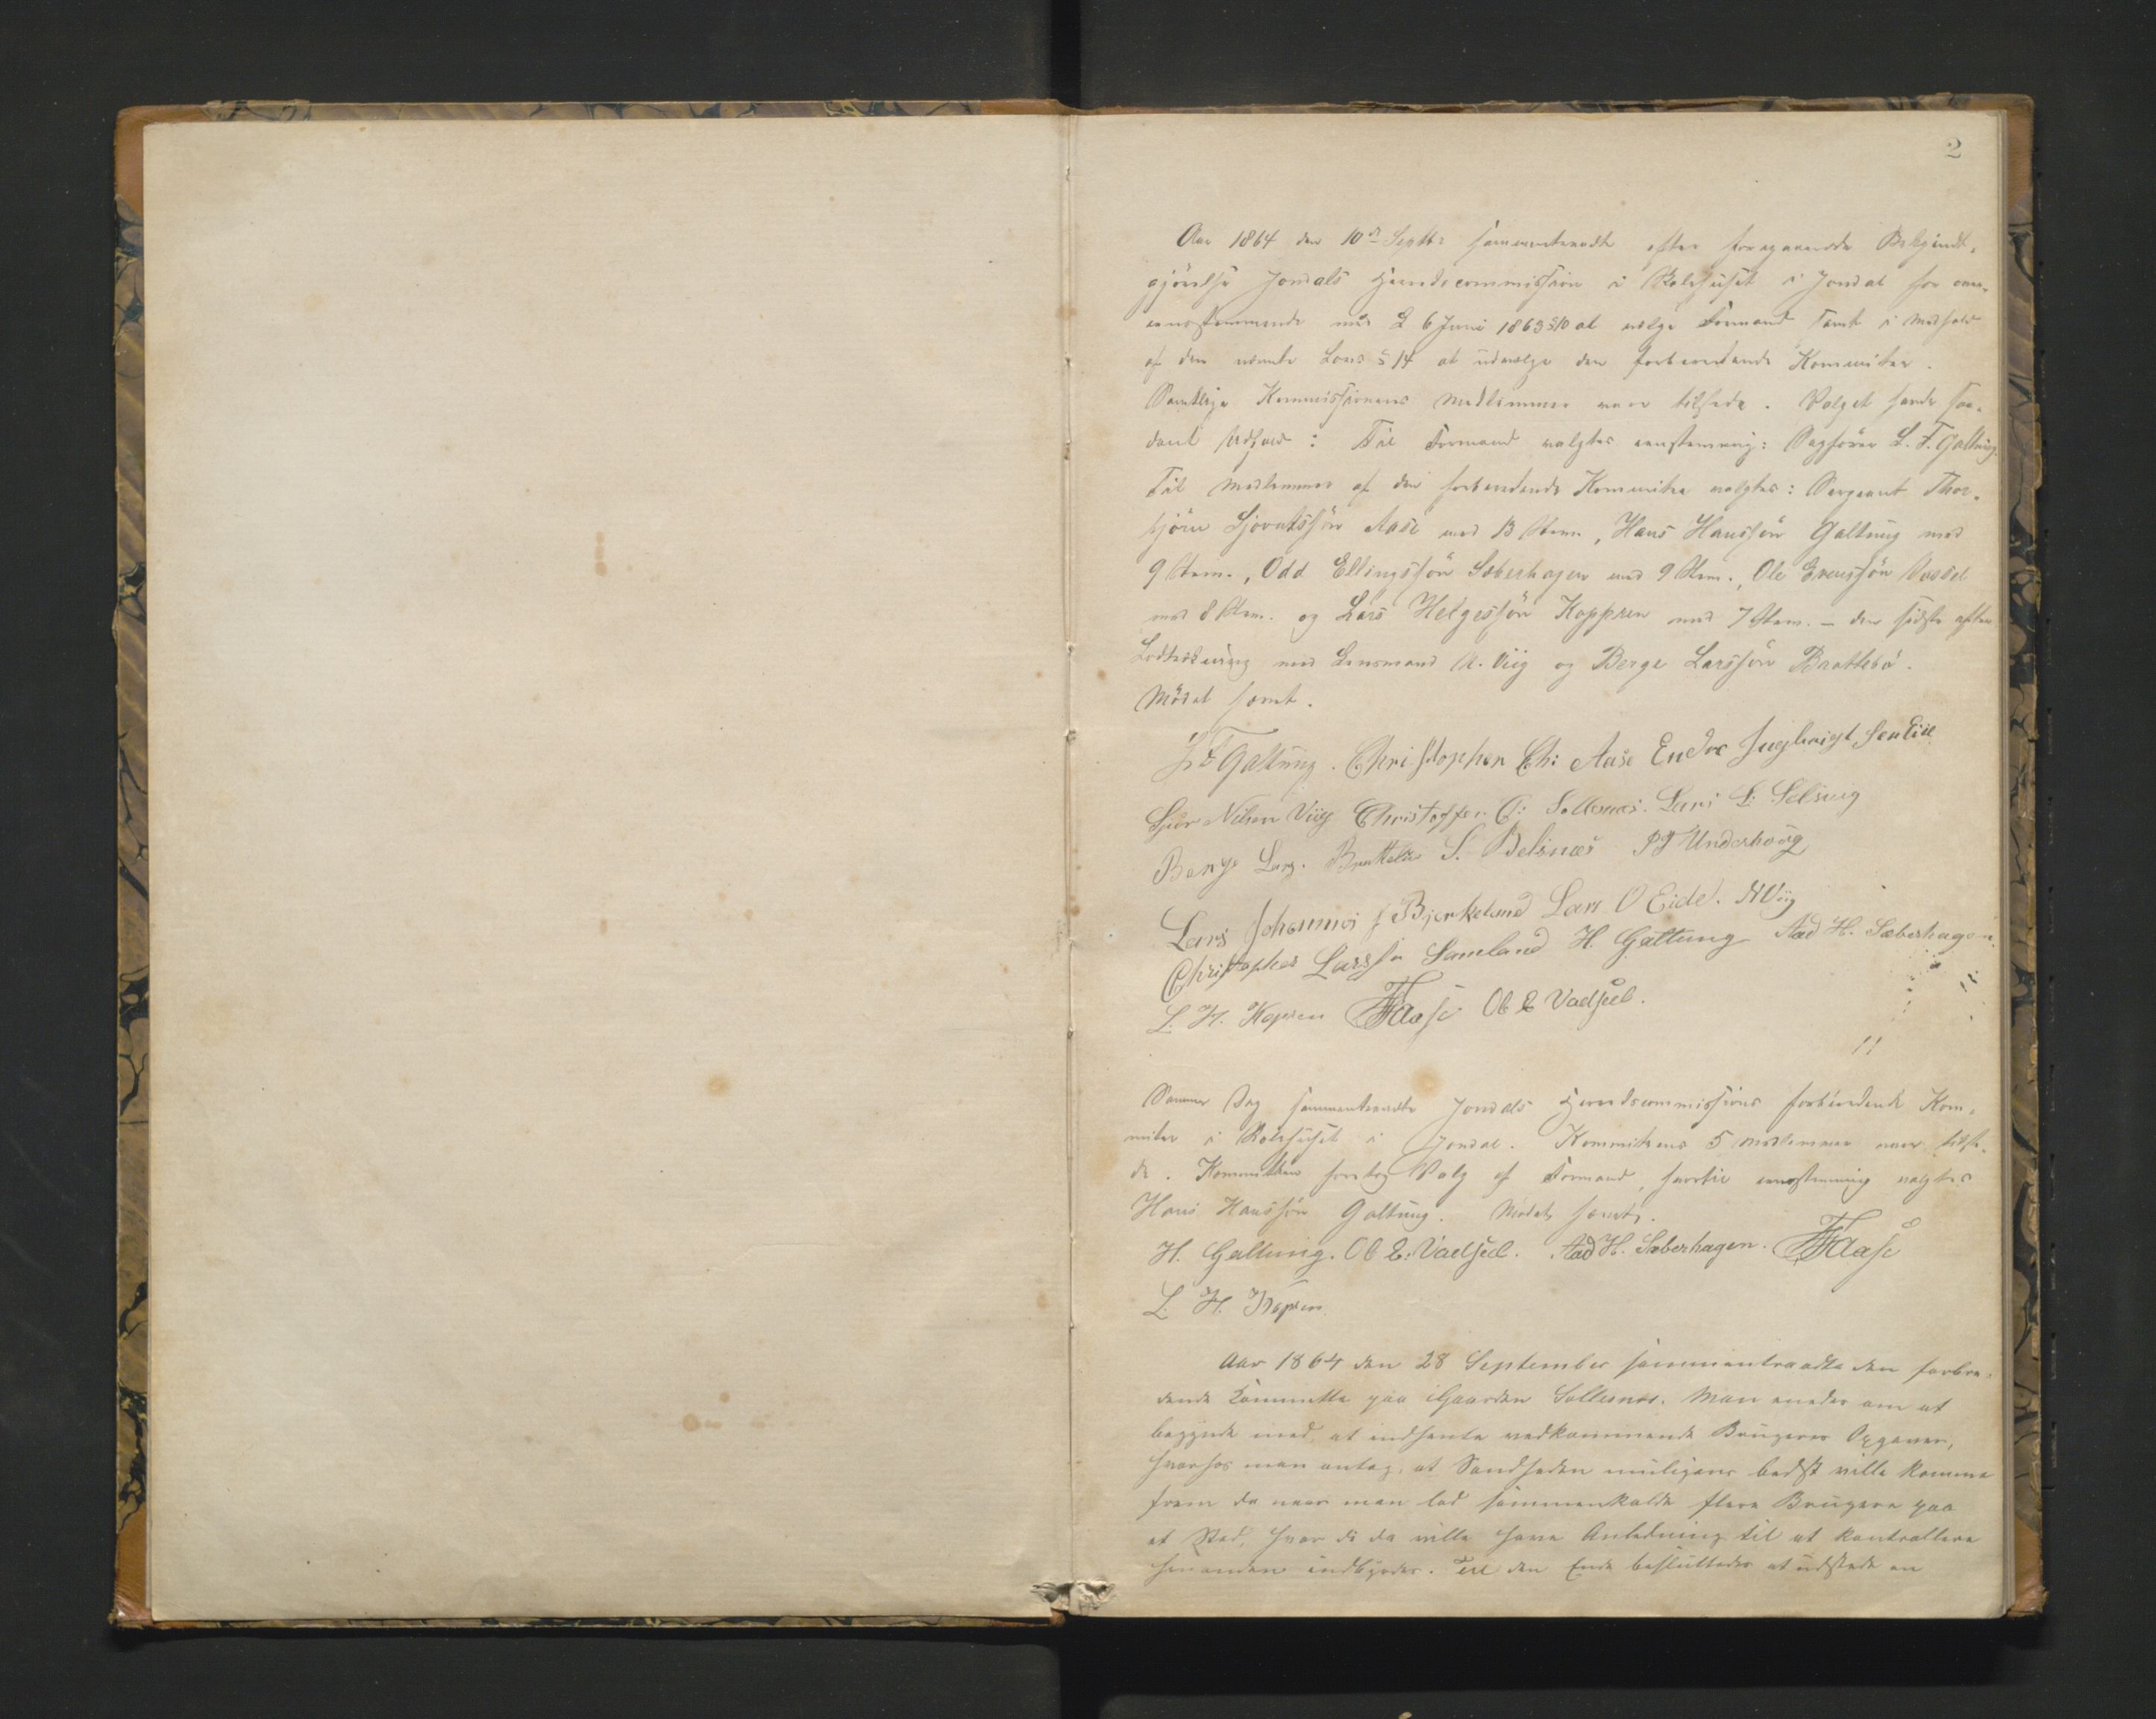 2
Aar 1864 den 10de Septbr sammentraadte efter foregaaende Bekjendt-
gjörelse Jondals Herredscommission i Skolehuset i Jondal for over-
ensstemmende med L 6 Juni 1863 § 10 at vælge Formand samt i Medhold
af den nævnte Lovs § 14 at udvælge den forberedende Kommitee.
Samtlige Kommissionens Medlemmer vare tilstede. Valget havde saa-
dant Udfald: Til Formand valgtes eenstemmig: Sagförer L. F. Galtung.
Til Medlemmer af den forberedende Kommitee valgtes: Sergeant Thor-
björn Sjovatssön Aase med 13 Stem., Hans Hanssön Galtung med
9 Stem., Odd Ellingssön Sæberhagen med 9 Stem., Ole Evenssön Vadsel
med 8 Stem. og Lars Helgessön Koppren med 7 Stem. – den sidste efter
Lodtrækning med Lensmand N. Viig og Berge Larssön Brattebö.
Mödet hævet.
L F Galtung. Christopher Ch: Aase Endre
Sjur Nilsen Viig Christoffer O: Sollesnæs. Lars L: Selsvig
Berge Lars. Brattebö S. Belsnæs PJ Underhoug
Lars Johannes s Bjerkeland Lars O Eide. NViig
Christopher Larss. Samland H. Galtung Aad H. Sæberhagen.
L. H. Kopren Aase Ol E Vadseel.
Samme Dag sammentraadte Jondals Herredscommissions forberedende Kom-
mitee i Skolehuset i Jondal. Kommiteens 5 Medlemmer vare tilste-
de. Kommiteen foretog Valg af Formand, hvortil eenstemmig valgtes
Hans Hanssön Galtung. Mödet hævet.
H. Galtung. Ol E: Vadseel. Aad H. Sæberhagen. Aase
L. H. Kopren.
Aar 1864 den 28 September sammentraadte den forbere-
dende Committe paa Gaarden Sollesnes. Man enedes om at
begynde med at indhente vedkommende Brugeres Opgaver,
hvorhos man antog, at Sandheden muligens bedst ville komme
frem da naar man lod sammenkalde flere Brugere paa
et Sted, hvor de da ville have Anledning til at kontrollere
hinanden indbyrdes. Til den Ende besluttedes at udstede en